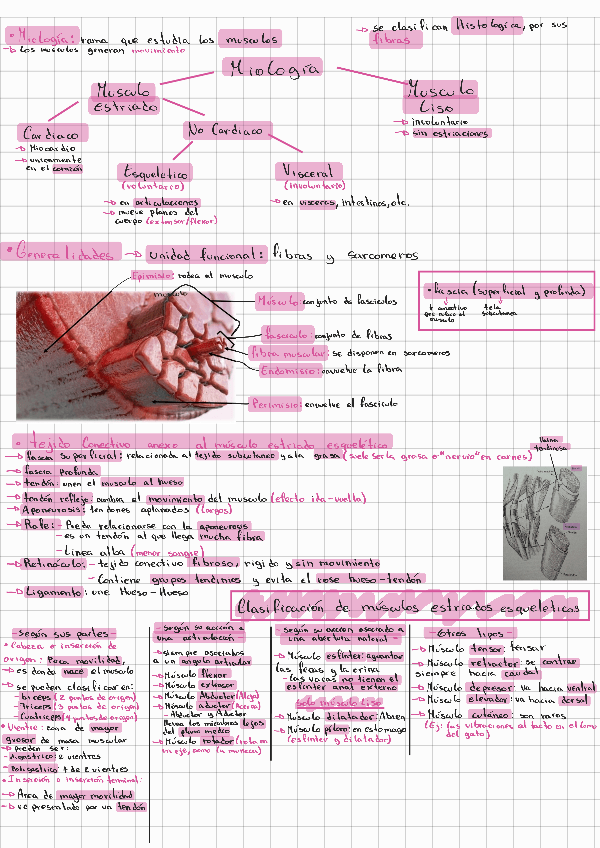 • Miología: rama que estudia los musculos
→ Los musculos generan movimiento
→ se clasifican Histologica, por sus fibras
Miología
Musculo Estriado
Musculo Liso
→ involuntario
→ sin estriaciones
Cardiaco
→ Miocardio
→ unicamente en el corazón
No Cardiaco
Esqueletico
(voluntario)
→ en articulaciones
→ mueve planos del cuerpo (extensor/flexor)
Visceral
(involuntario)
→ en visceras, intestinos, etc.
• Generalidades → unidad funcional: fibras y sarcomeros
Epimisio: rodea el musculo
musculo
Músculo: conjunto de fasciculos
fasciculo: conjunto de fibras
fibra muscular: se disponen en sarcomeros
Endomisio: envuelve la fibra
Perimisio: envuelve el fasciculo
• fascia (superficial y profunda)
t conectivo que rodea el musculo
tela subcutanea
• tejido Conectivo anexo al músculo estriado esquelético
→ fascia superficial: relacionada al tejido subcutaneo y a la grasa (suele ser la grasa o "nervio" en carnes)
→ fascia profunda
→ tendón: unen el musculo al hueso
→ tendón reflejo: cambia el movimiento del musculo (efecto ida-vuelta)
→ Aponeurosis: tendones aplanados (largos)
→ Rafe: - Puede relacionarse con la aponeurosis
- es un tendón al que llega mucha fibra
- Linea alba (menor sangre)
→ Retináculo: - tejido conectivo fibroso, rigido y sin movimiento
- Contiene grupos tendinosos y evita el rose Hueso-tendón
→ Ligamento: une Hueso-Hueso
Vaina tendinosa
Clasificación de músculos estriados esqueleticos
- según sus partes -
• Cabeza o inserción de origen: Poca movilidad,
→ es donde nace el musculo
→ se pueden clasificar en:
- biceps (2 puntos de origen)
- Triceps (3 puntos de origen)
- Cuatriceps (4 puntos de origen)
• Vientre: zona de mayor grosor de masa muscular
→ pueden ser:
- digastrico: 2 vientres
- Poligastrico: + de 2 vientres
• Inserción o inserción terminal:
→ Área de mayor movilidad
→ ve presentado por un tendón
- según su acción a una articulación -
→ siempre asociados a un angulo articular
→ Músculo flexor
→ Músculo extensor
→ Músculo Abductor (Aleja)
→ Músculo aductor (Acerca)
- Abductor y Aductor
lleva los miembros lejos del plano medio
→ Músculo rotador (rota en un eje, como la muñeca)
- según su acción asociado a una abertura natural -
→ Músculo esfinter: aguantar las fecas y la orina
- las vacas no tienen el esfinter anal externo
solo musculo liso
→ Músculo dilatador: Abren
→ Músculo piloro: en estomago (esfinter y dilatador)
- Otros tipos -
→ Músculo tensor: tensar
→ Músculo retractor: se contrae siempre hacia caudal
→ Músculo depresor: va hacia ventral
→ Músculo elevador: va hacia dorsal
→ Músculo cutáneo: son raros
(Ej: las vibraciones al tacto en el lomo del gato)